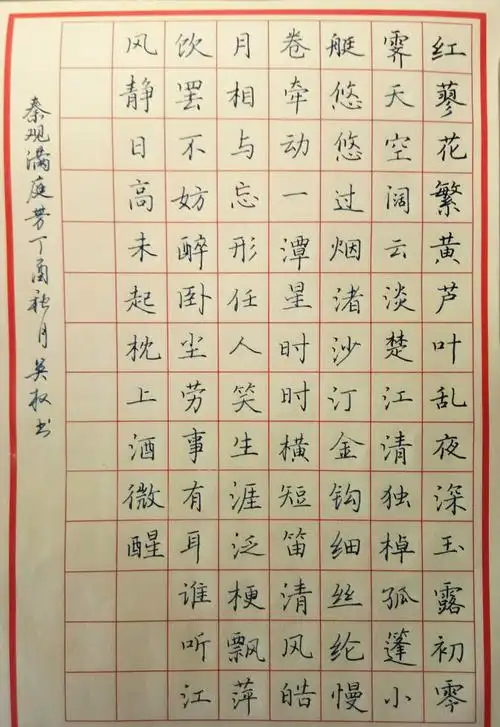 红蓼花繁黄芦叶乱夜深玉露初零
霁天空阔云淡楚江清独棹孤蓬小
艇悠悠过烟渚沙汀金钩细丝纶慢
卷牵动一潭星时时横短笛清风皓
月相与忘形任人笑生涯泛梗飘萍
饮罢不妨醉卧尘劳事有耳谁听江
风静日高未起枕上酒微醒
秦观满庭芳丁酉秋月吴权书